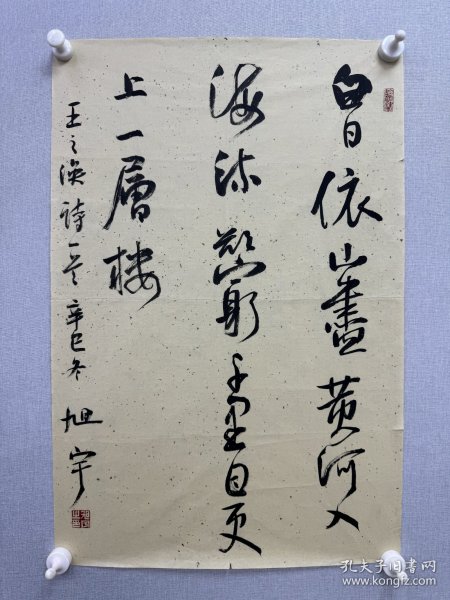 白日依山盡黄河入
海流欲窮千里目更
上一層楼
王之渙詩一首 辛巳冬 旭宇
孔夫子旧书网
www.kongfz.com